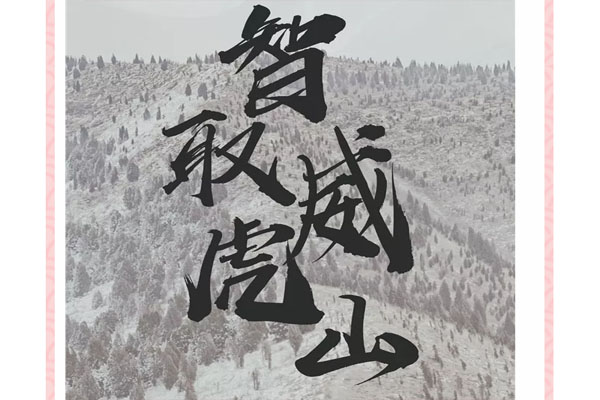 智取威虎山